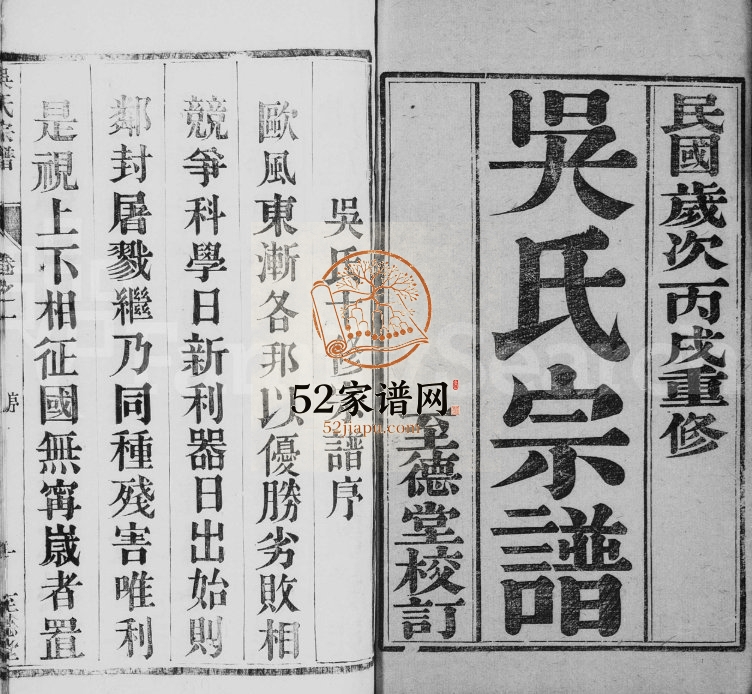 民國歲次丙戌重修
吳氏宗譜
至德堂校訂
吳氏 修 譜序
歐風東漸各邦以優勝劣敗相
競爭科學日新利器日出始則
鄰封屠戮繼乃同種殘害唯利
是視上下相征國無寧歲者置
吳氏宗譜
序
52家谱网
52jiapu.com